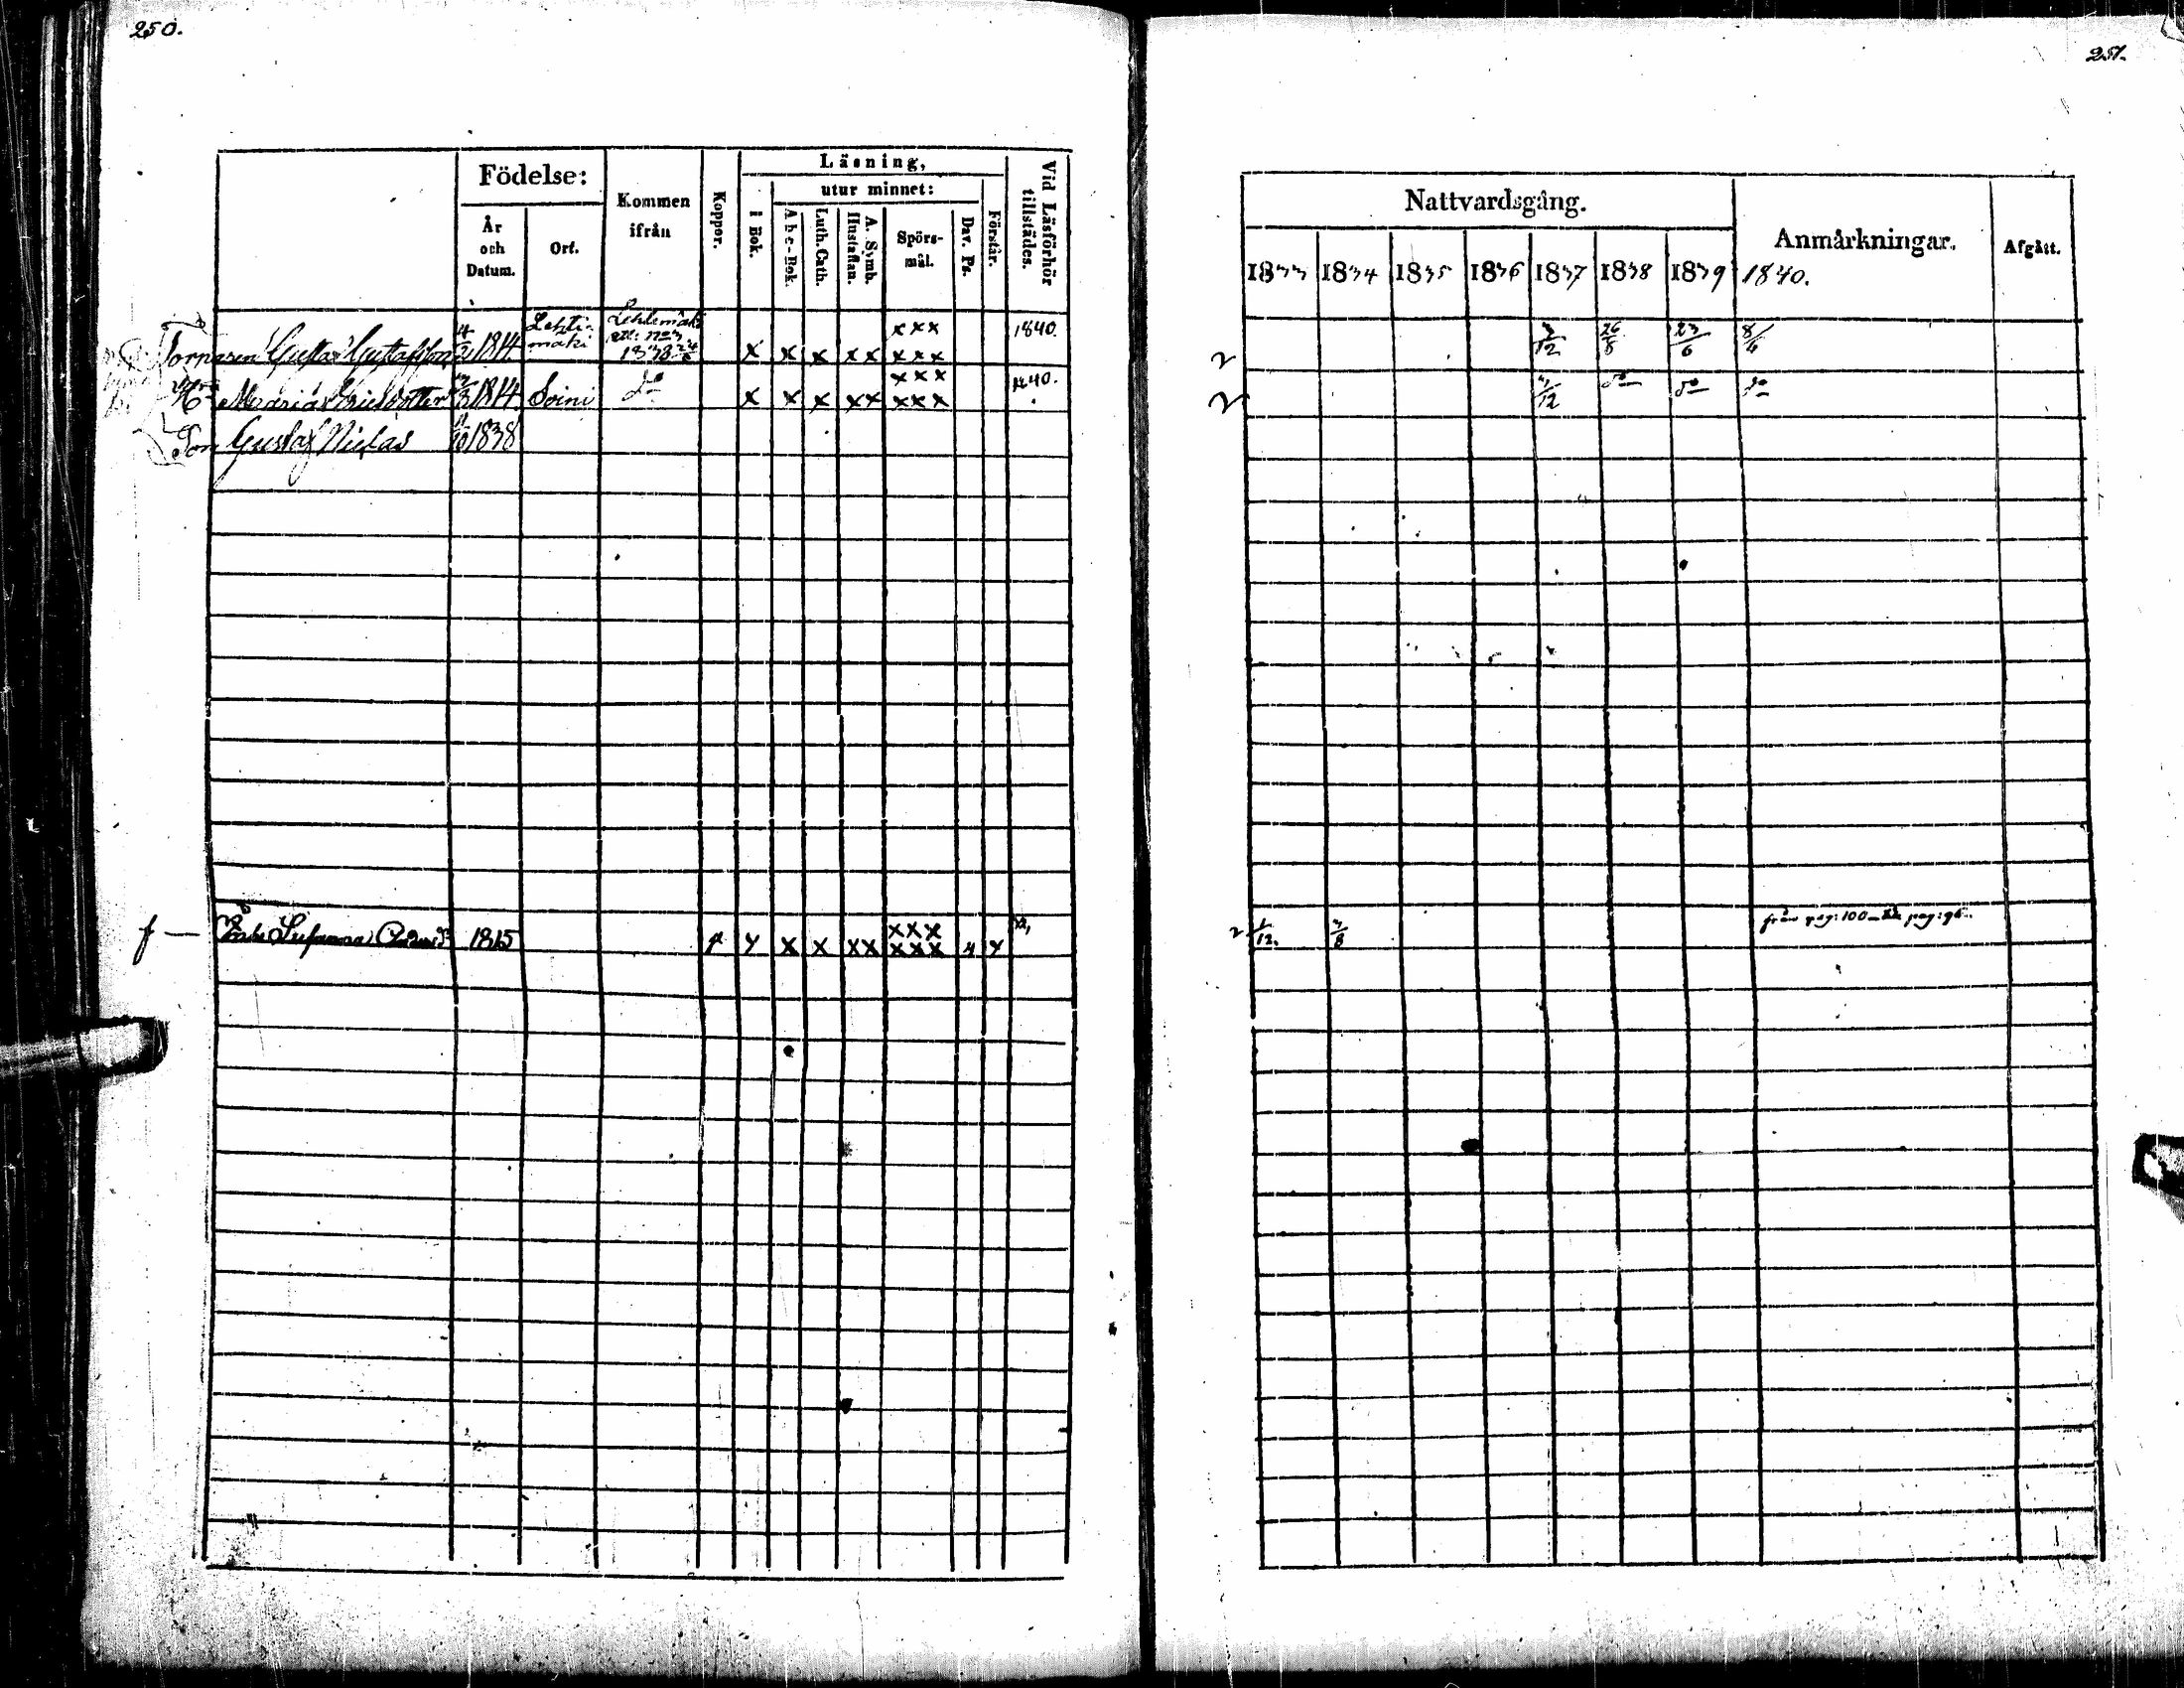 250.
Födelse:
År
och
Datum.
Ort.
Kommen
ifrån
Koppor.
Läsning,
utur minnet:
i Bok.
Abc-Bok.
Luth. Cath.
A. Symb.
Hustaflan.
Spörs-
mål.
Dav. Ps.
Förstår.
Vid Läsförhör
tillstädes.
Torparen Gustaf Gustafsson 4/2 1814 Lehti-
mäki Lehtemäki
att: no 3
1838 x x x x x x x x
x x x 1840.
Maria 1814 Soini do x x x x x x x x
x x x 1840.
Son Gustaf Niclas 11/10 1838
Enk: Susanna 1815 x x x x x x x
x x x
251.
Nattvardsgång.
Anmärkningar.
Afgått.
1833 1834 1835 1836 1837 1838 1839 1840.
2 3/12 26/8 23/6 8/6
2 3/12 do do do
2 1/12. 3/8 från pag: 100 pag: 96.